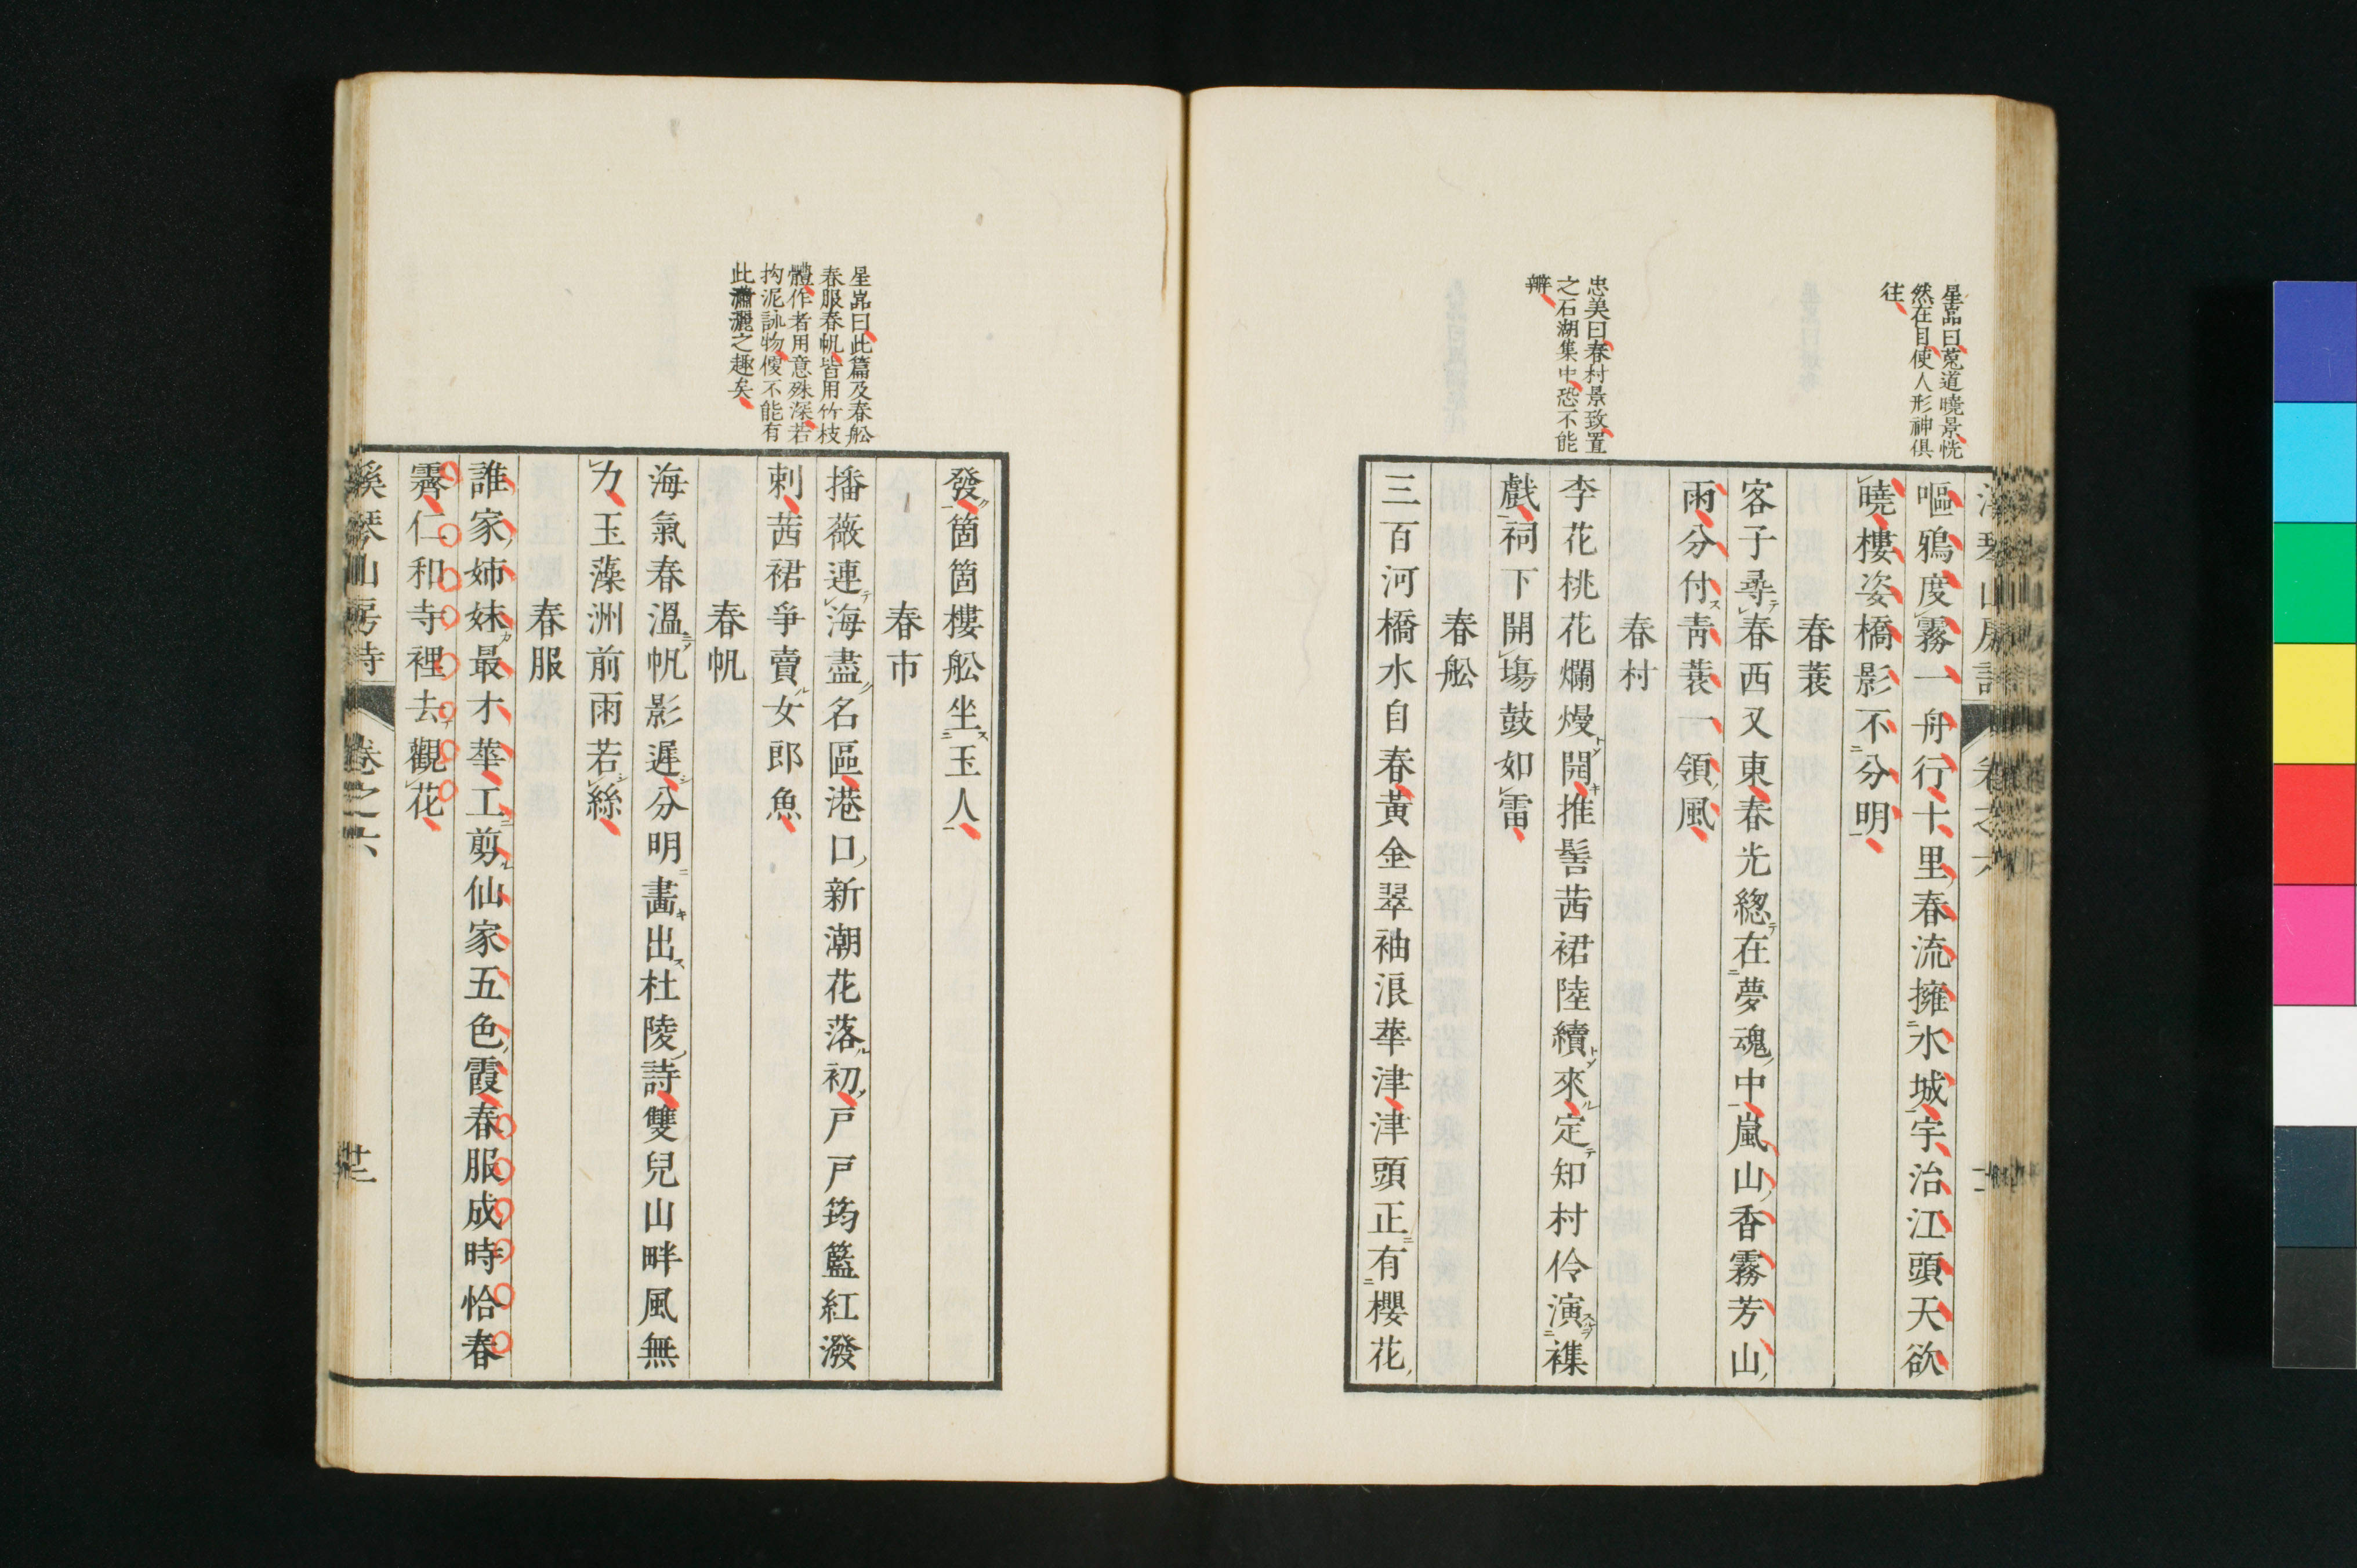 星喦曰菟道曉景恍
然在目使人形神俱
往
嘔鴉度霧一舟行十里春流擁水城宇治江頭天欲
曉樓姿橋影不分明
春蓑
客子尋春西又東春光總在夢魂中嵐山香霧芳山
雨分付青蓑一領風
春村
忠美曰春村景致置
之石湖集中恐不能
辨
李花桃花爛熳開推髻茜裙陸續來定知村伶演襍
戲祠下開塲鼓如雷
春舩
三百河橋水自春黃金翠袖浪華津津頭正有櫻花
發箇箇樓舩坐玉人
春市
播薇連海盡名區港口新潮花落初戸戸筠籃紅潑
剌茜裙爭賣女郎魚
春帆
星喦曰此篇及春舩
春服春帆皆用竹枝
體作者用意殊深若
拘泥詠物僾不能有
此瀟灑之趣矣
海氣春溫帆影遲分明畫出杜陵詩雙兒山畔風無
力玉藻洲前雨若絲
春服
誰家姉妹最才華工剪仙家五色霞春服成時恰春
霽仁和寺裡去觀花
溪琴山房詩
卷之六
廿二